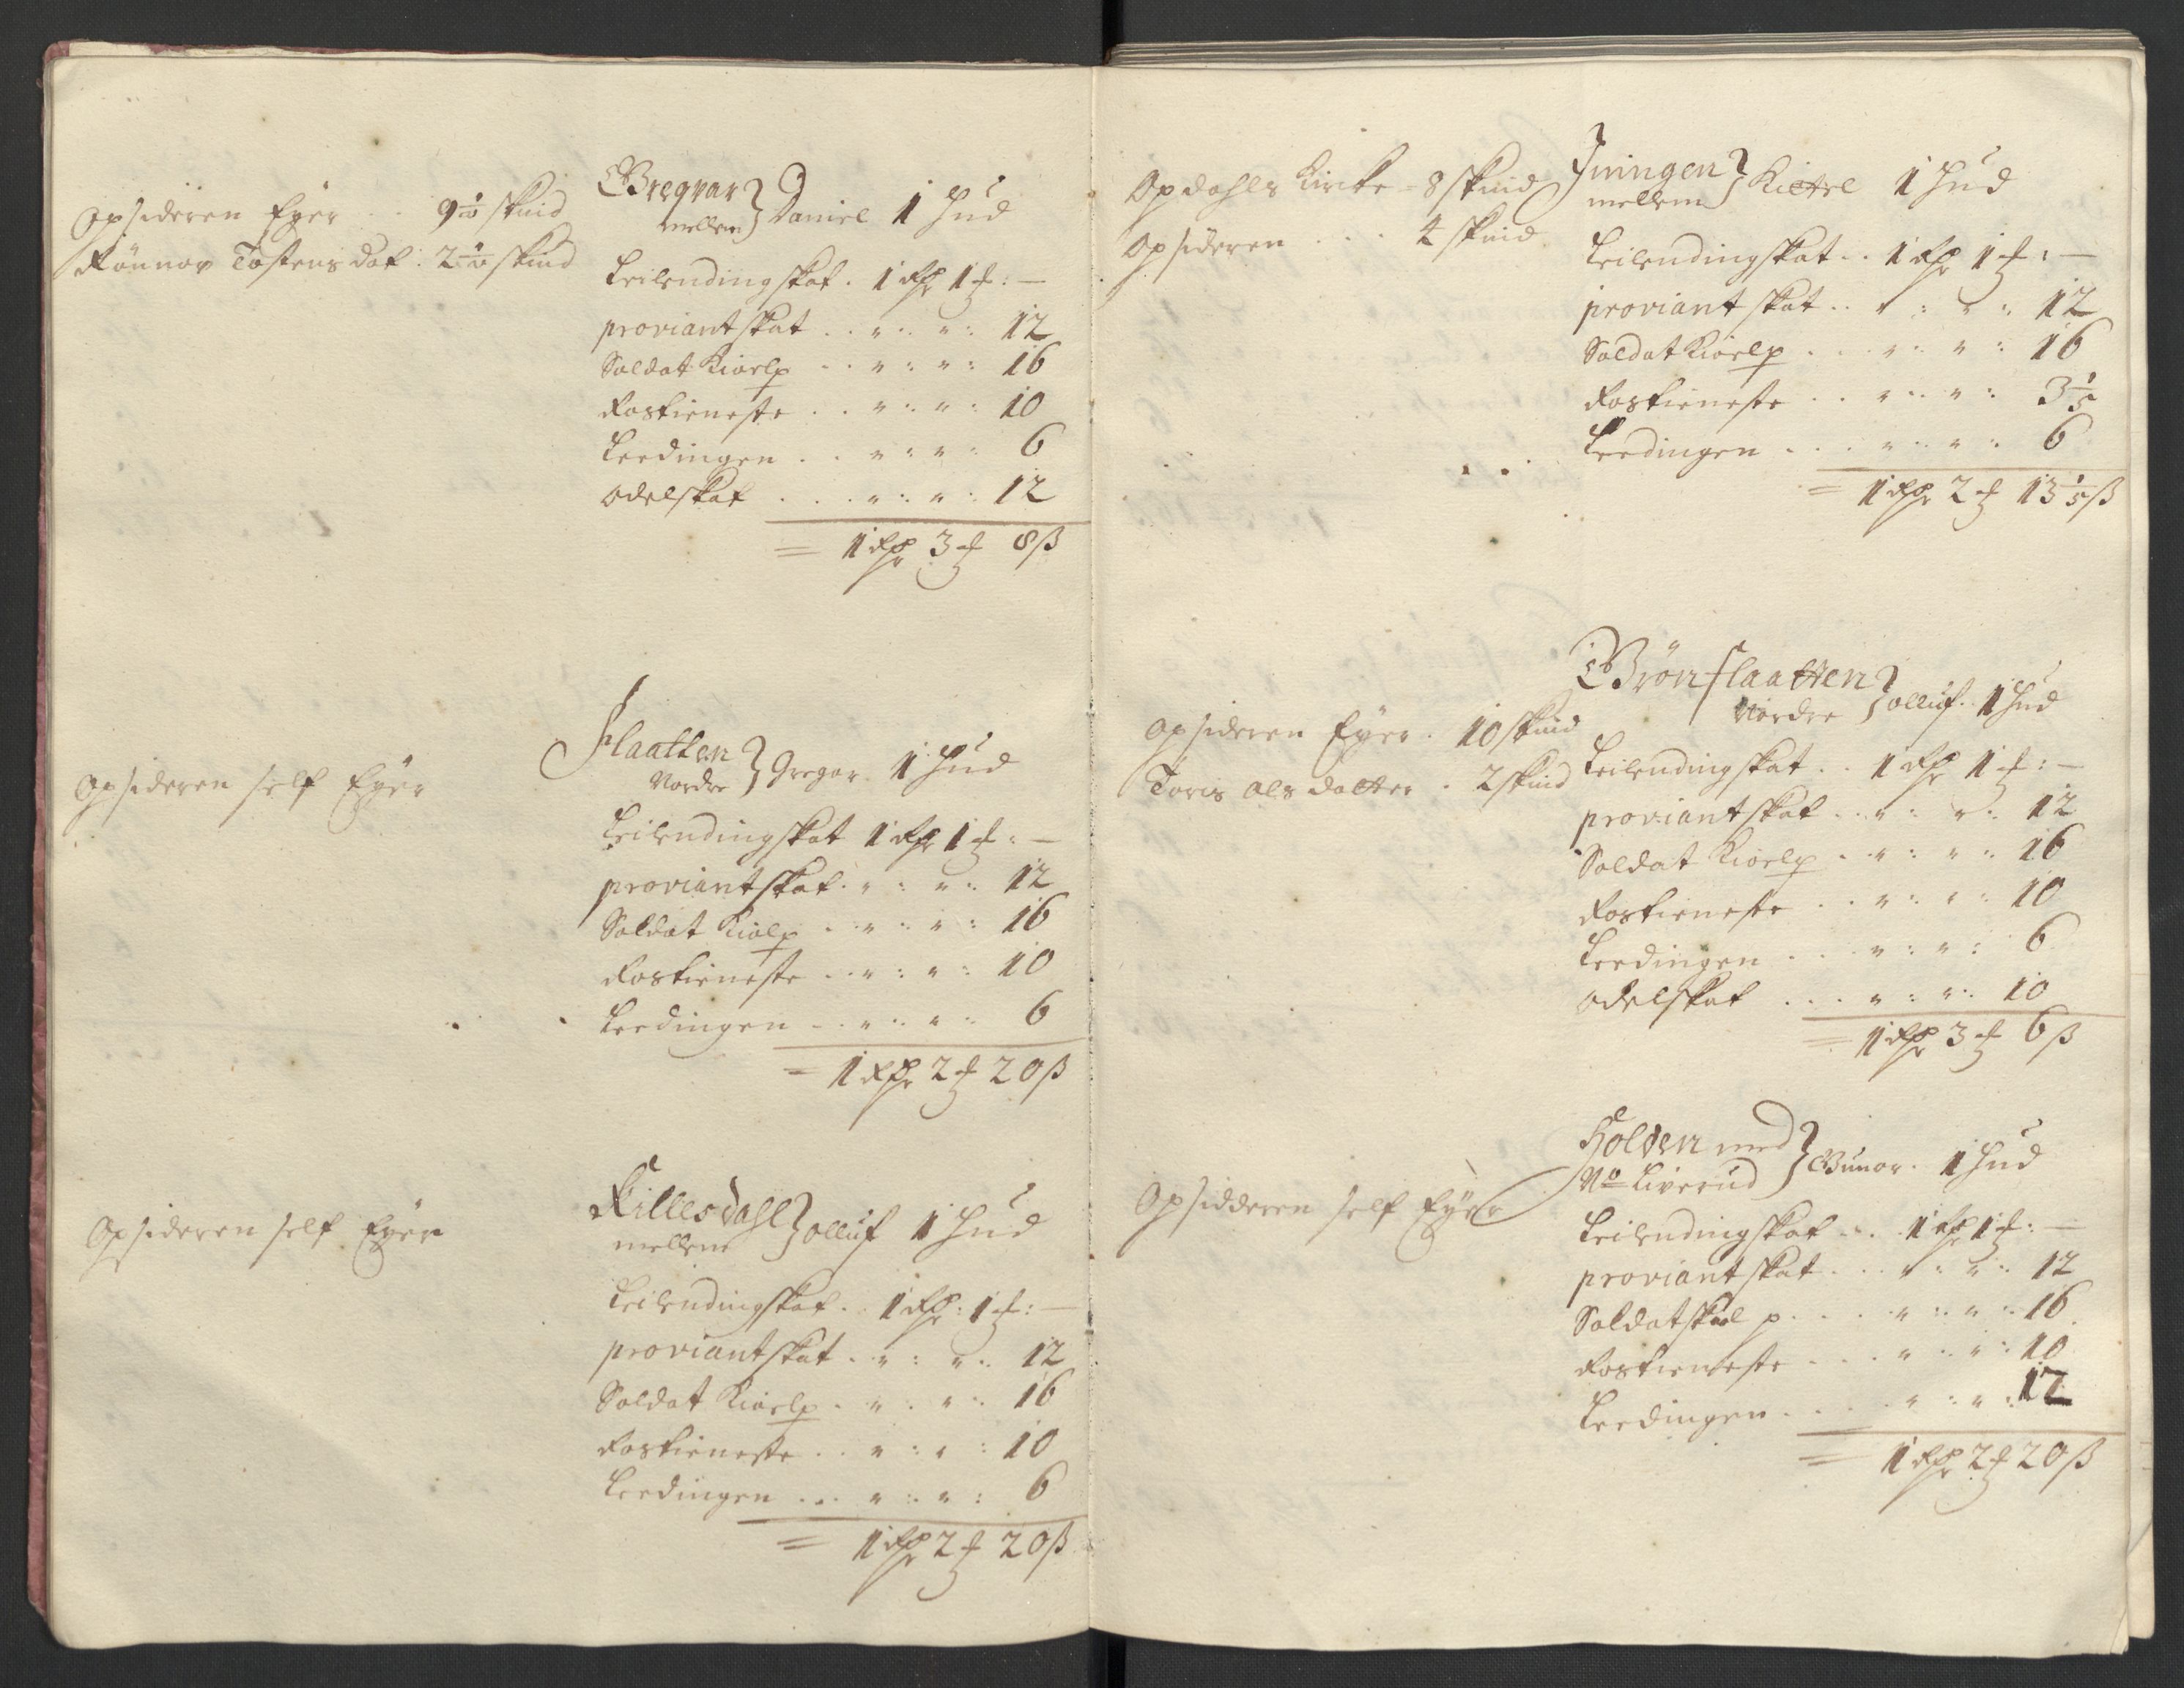 Opsideren Eyer . . 9 1/10 skind
Rönnov Tostens dat : 2 9/10 skind
Bregvar
mellem } Daniel 1 Hud
Leilendingskat . 1 Rdr 1 ort : —
proviantskat . . " : " : 12
Soldat Kiorlp . . " : " : 16
Rostieneste . . " : " : 10
Leedingen . . " : " : 6
Odelskat . . . " : " : 12
= 1 Rdr 3 ort 8 ß
Opsideren self Eyer
Flaatten
Nordre } Gregar 1 Hud
Leilendingskat 1 Rdr 1 ort : —
proviantskat . " : " : 12
Soldat Kiolp . . " : " : 16
Rostieneste . . " : " : 10
Leedingen . . " : " : 6
= 1 Rdr 2 ort 20 ß
Opsideren self Eyer
Killesdahl
mellem } olluf 1 Hud
Leilendingskat . . 1 Rdr : 1 ort : —
proviantskat . " : " : 12
Soldat Kiorlp . " : " : 16
Rostieneste . . " : " : 10
Leedingen . . . " : " : 6
= 1 Rdr 2 ort 20 ß
Opdahls Kircke = 8 skind
Opsideren . . . 4 skind
Juvingen
mellem } Kittel 1 Hud
Leilendingskat . . 1 Rdr 1 ort : —
proviant skat . . " : " : 12
Soldat Kiorlp . . . " : " : 16
Rostieneste . . " : " : 3 1/5
Leedingen . . . " : " : 6
= 1 Rdr 2 ort 13 1/5 ß
Opsideren Eyer . 10 skind
Toris Als datter . 2 skind
Brönflaatten
Nordre } olluf . 1 Hud
Leilendingskat . . 1 Rdr 1 ort : —
proviantskat . . " : " : 12
Soldat Kiorlp . . " : " : 16
Rostieneste . . " : " : 10
Leedingen . . . " : " : 6
Odelskat . . . " : " : 10
= 1 Rdr 3 ort 6 ß
Opsidderen self Eyer
Holden med
No Liverud } Gunor . 1 Hud
Leilendingskat . . . 1 Rdr 1 ort : —
proviantskat . . . " : " : 12
Soldatskiol p . . . " : " : 16
Rostieneste . . . " : " : 10
Leedingen . . . . " : " : 12
= 1 Rdr 2 ort 20 ß